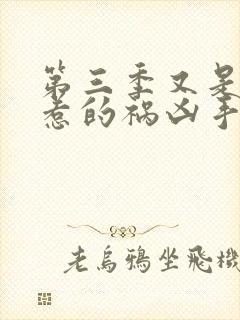 第三季又是
惹的祸凶手
老乌鸦坐飛機